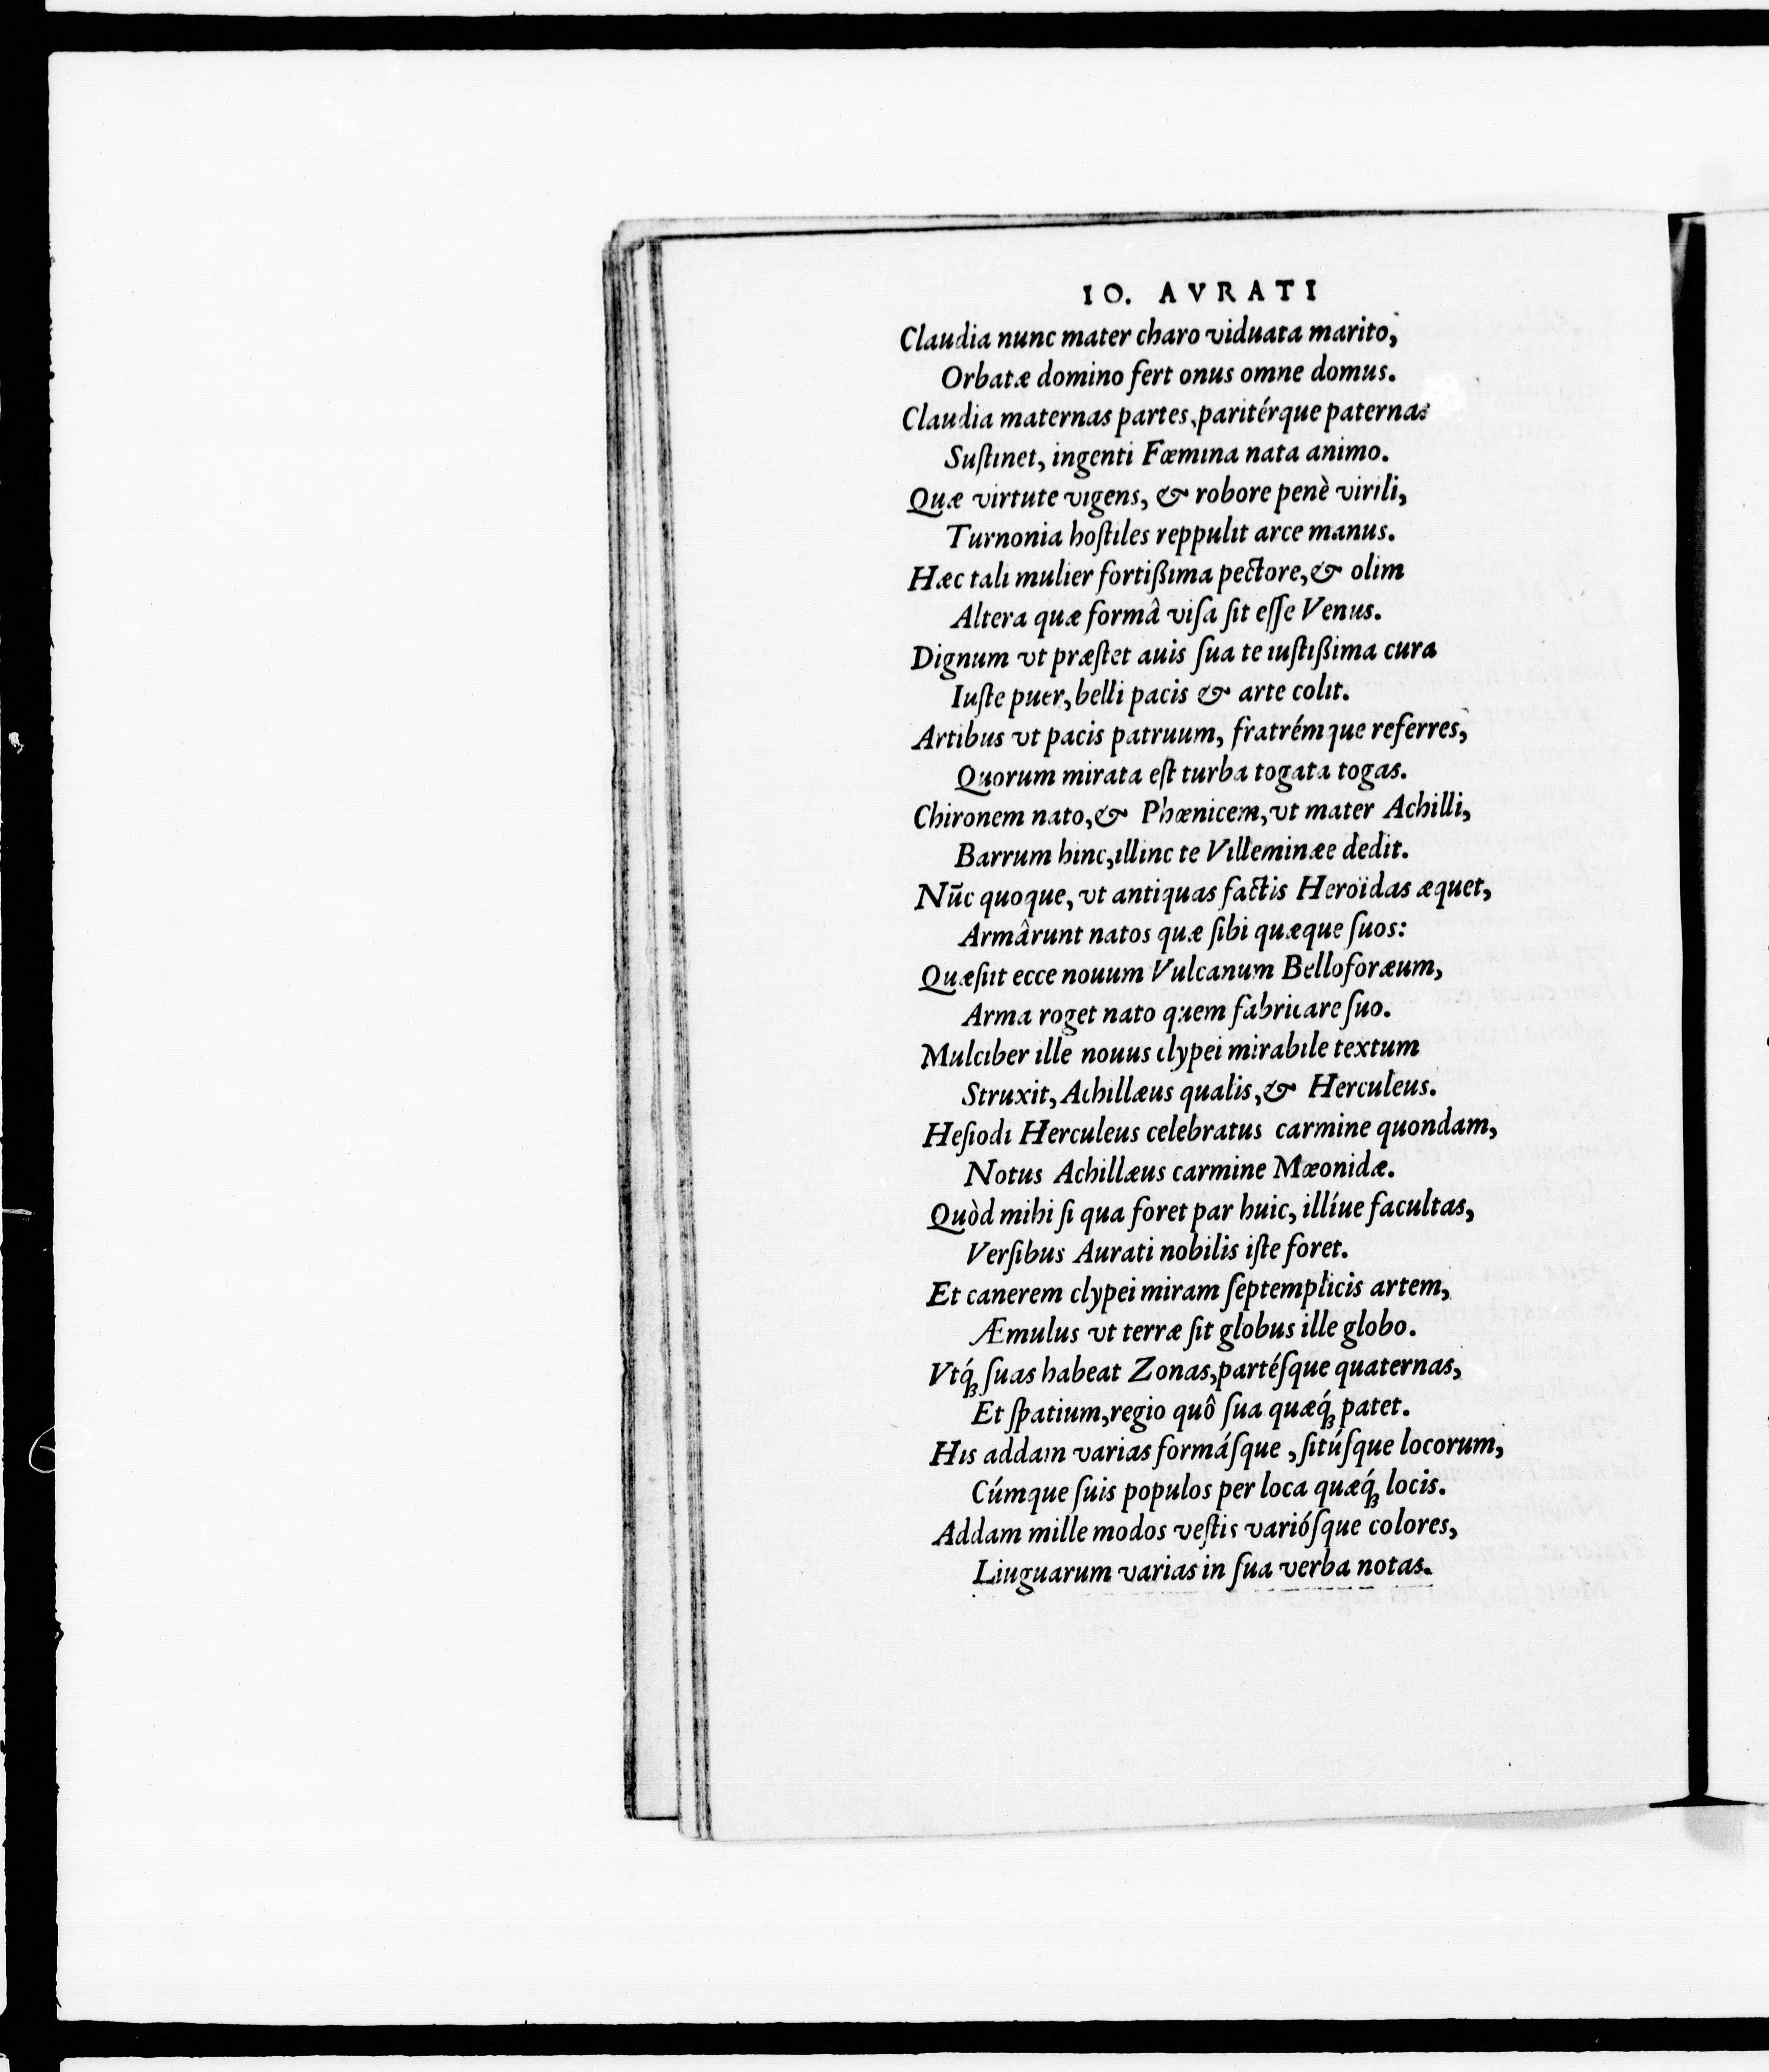 IO. AVRATI
Claudia nunc mater charo viduata marito,
Orbatæ domino fert onus omne domus.
Claudia maternas partes, paritérque paternas
Suſtinet, ingenti Fœmina nata animo.
Quæ virtute vigens, & robore penè virili,
Turnonia hoſtiles reppulit arce manus.
Hæc tali mulier fortißima pectore, & olim
Altera quæ formâ viſa ſit eſſe Venus.
Dignum vt præſtet auis ſua te iuſtißima cura
Iuſte puer, belli pacis & arte colit.
Artibus vt pacis patruum, fratrémque referres,
Quorum mirata eſt turba togata togas.
Chironem nato, & Phœnicem, vt mater Achilli,
Barrum hinc, illinc te Villeminæe dedit.
Nūc quoque, vt antiquas factis Heroïdas æquet,
Armârunt natos quæ ſibi quæque ſuos:
Quæſiit ecce nouum Vulcanum Belloforæum,
Arma roget nato quem fabricare ſuo.
Mulciber ille nouus clypei mirabile textum
Struxit, Achillæus qualis, & Herculeus.
Heſiodi Herculeus celebratus carmine quondam,
Notus Achillæus carmine Mæonidæ.
Quòd mihi ſi qua foret par huic, illíue facultas,
Verſibus Aurati nobilis iſte foret.
Et canerem clypei miram ſeptemplicis artem,
Æmulus vt terræ ſit globus ille globo.
Vtq́; ſuas habeat Zonas, partéſque quaternas,
Et ſpatium, regio quô ſua quæq́; patet.
His addam varias formáſque, ſitúſque locorum,
Cúmque ſuis populos per loca quæq́; locis.
Addam mille modos veſtis varióſque colores,
Liuguarum varias in ſua verba notas.